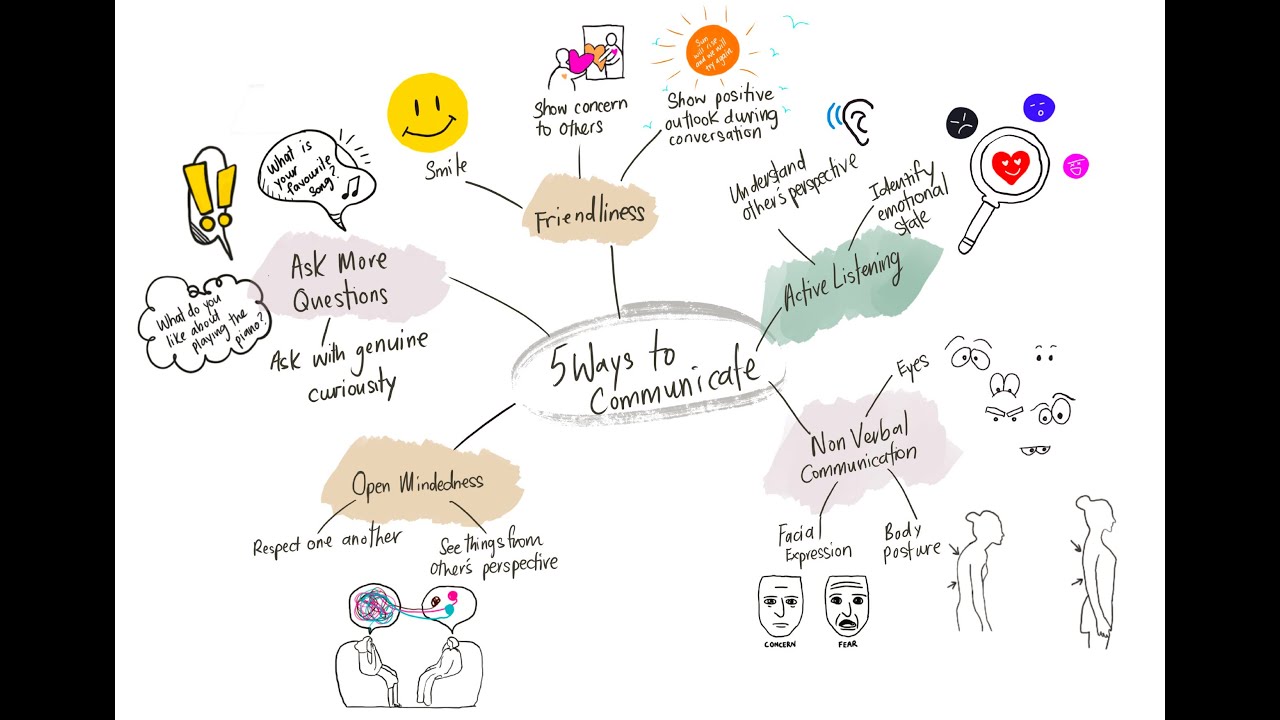 5 Ways to
Communicate
Friendliness
Smile
Show concern
to others
Show positive
outlook during
conversation
Sun
will rise
and we will
try again
Active Listening
Understand
other's perspective
Identify
emotional
state
Non Verbal
Communication
Eyes
Facial
Expression
CONCERN
FEAR
Body
Posture
Open Mindedness
Respect one another
See things from
other's perspective
Ask More
Questions
Ask with genuine
curiousity
What is
your
favourite
song?
What do you
like about
playing the
piano?